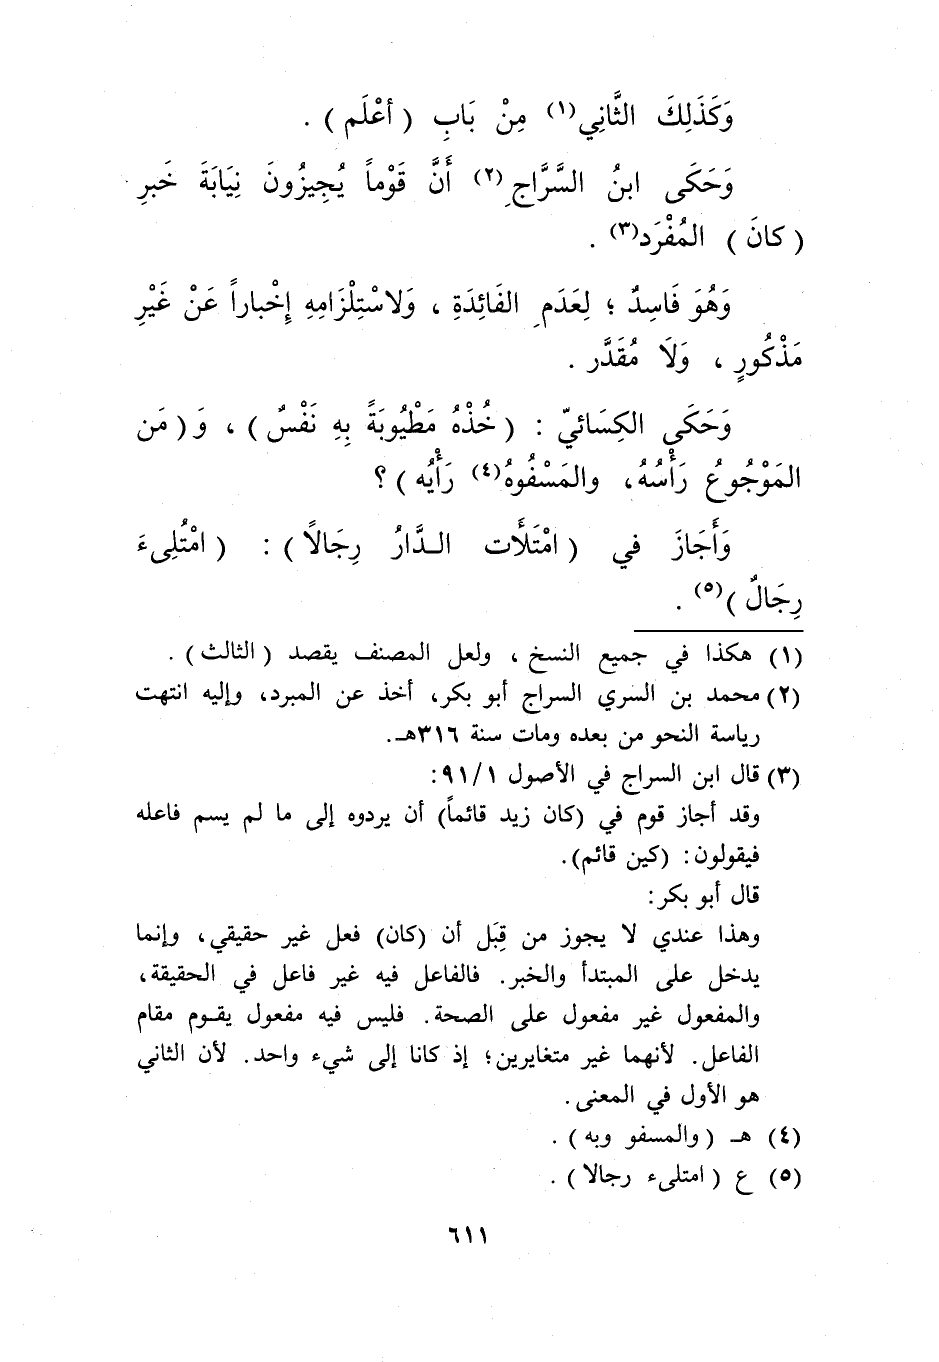 وَكَذَلِكَ الثَّانِي(١) مِنْ بَابِ (أعْلَم) .
وَحَكَى ابنُ السَّرَّاجِ(٢) أَنَّ قَوْماً يُجِيزُونَ نِيَابَةَ خَبرِ
(كانَ) المُفْرَد(٣) .
وَهُوَ فَاسِدٌ ؛ لِعَدَمِ الفَائِدَةِ ، وَلاسْتِلْزَامِهِ إِخْباراً عَنْ غَيْرِ
مَذْكُورٍ ، وَلَا مُقَدَّر .
وَحَكَى الكِسَائيّ : (خُذْهُ مَطْيُوبَةً بِهِ نَفْسٌ) ، وَ(مَن
المَوْجُوعُ رَأْسُهُ، والمَسْفُوهُ(٤) رَأْيُه) ؟
وَأَجَازَ في (امْتَلَأَت الدَّارُ رِجَالاً) : (امْتُلِىءَ
رِجَالٌ)(٥) .
(١) هكذا في جميع النسخ ، ولعل المصنف يقصد (الثالث) .
(٢) محمد بن السري السراج أبو بكر، أخذ عن المبرد، وإليه انتهت
رياسة النحو من بعده ومات سنة ٣١٦هـ.
(٣) قال ابن السراج في الأصول ٩١/١:
وقد أجاز قوم في (كان زيد قائماً) أن يردوه إلى ما لم يسم فاعله
فيقولون: (كين قائم).
قال أبو بكر:
وهذا عندي لا يجوز من قِبَل أن (كان) فعل غير حقيقي، وإنما
يدخل على المبتدأ والخبر. فالفاعل فيه غير فاعل في الحقيقة،
والمفعول غير مفعول على الصحة. فليس فيه مفعول يقـوم مقام
الفاعل. لأنهما غير متغايرين؛ إذ كانا إلى شيء واحد. لأن الثاني
هو الأول في المعنى.
(٤) هـ (والمسفو وبه) .
(٥) ع (امتلىء رجالا) .
٦١١